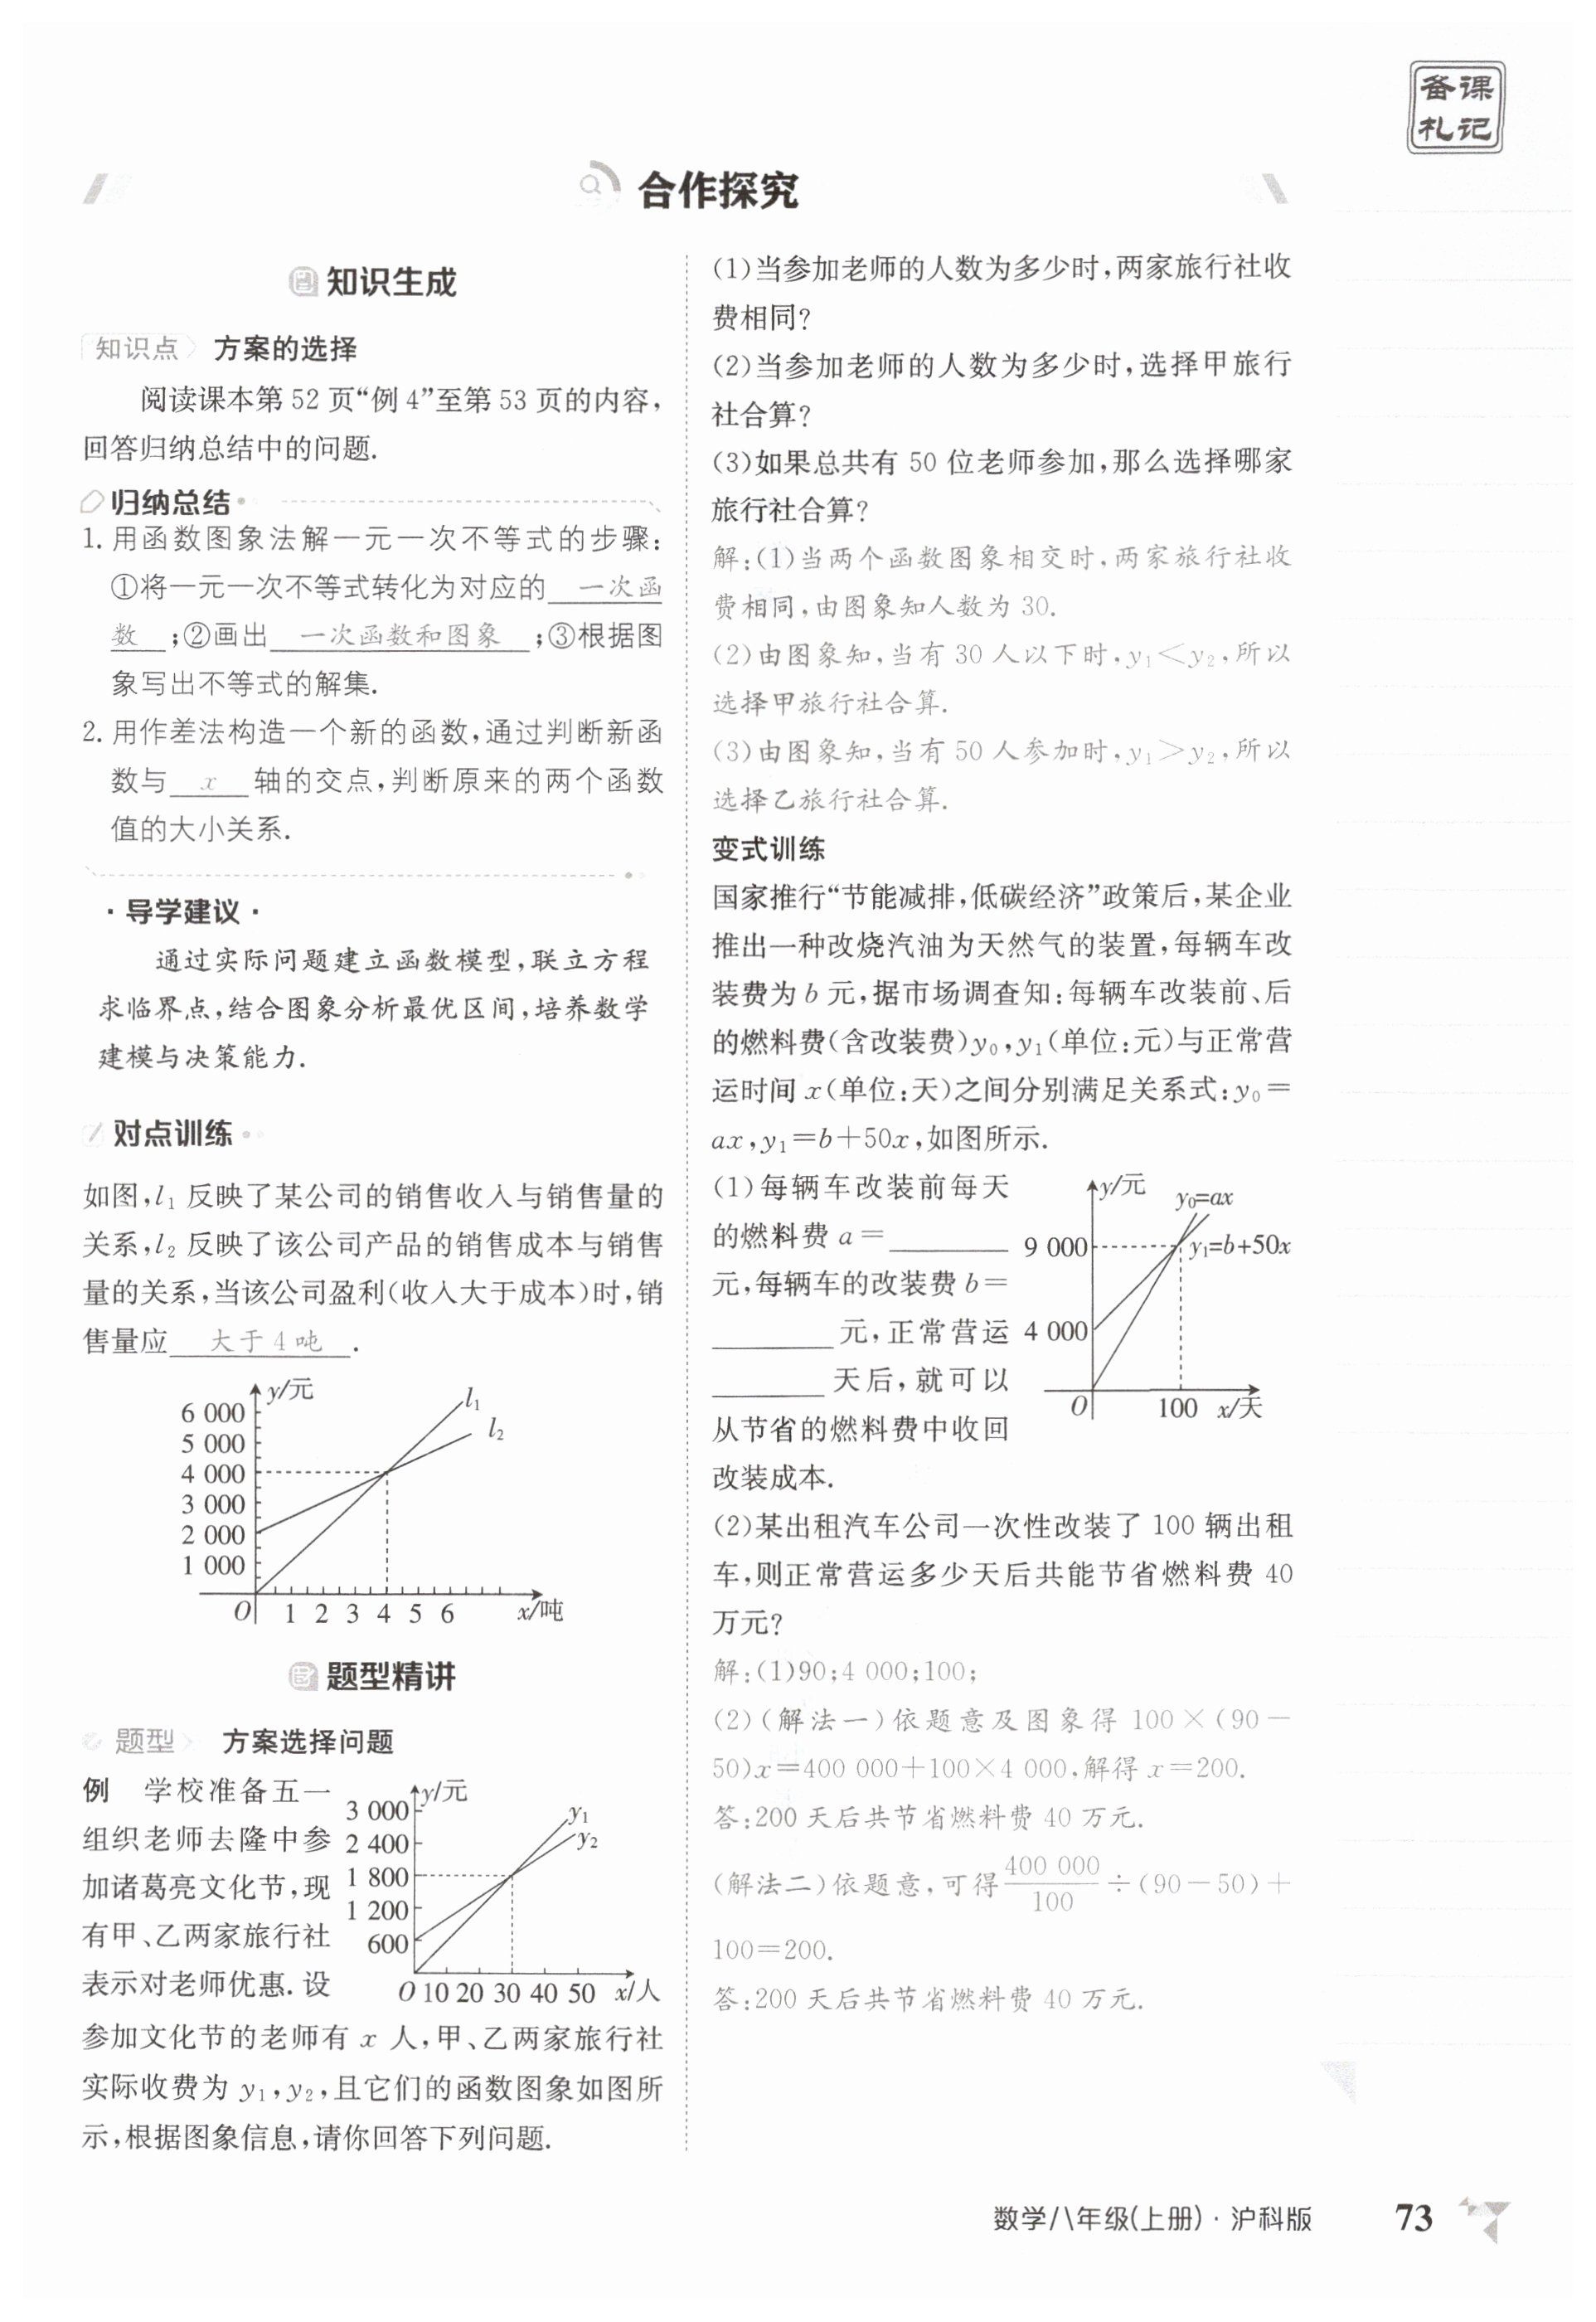 备课
札记
合作探究
知识生成
知识点 方案的选择
阅读课本第 52 页“例 4”至第 53 页的内容，
回答归纳总结中的问题.
归纳总结
1. 用函数图象法解一元一次不等式的步骤：
①将一元一次不等式转化为对应的 一次函
数 ；②画出 一次函数和图象 ；③根据图
象写出不等式的解集.
2. 用作差法构造一个新的函数，通过判断新函
数与 x 轴的交点，判断原来的两个函数
值的大小关系.
·导学建议·
通过实际问题建立函数模型，联立方程
求临界点，结合图象分析最优区间，培养数学
建模与决策能力.
对点训练
如图，l₁ 反映了某公司的销售收入与销售量的
关系，l₂ 反映了该公司产品的销售成本与销售
量的关系，当该公司盈利(收入大于成本)时，销
售量应 大于 4 吨 .
y/元
6 000
5 000
4 000
3 000
2 000
1 000
l₁
l₂
O 1 2 3 4 5 6 x/吨
题型精讲
题型 方案选择问题
例 学校准备五一
组织老师去隆中参
加诸葛亮文化节，现
有甲、乙两家旅行社
表示对老师优惠. 设
y/元
3 000
2 400
1 800
1 200
600
y₁
y₂
O 10 20 30 40 50 x/人
参加文化节的老师有 x 人，甲、乙两家旅行社
实际收费为 y₁，y₂，且它们的函数图象如图所
示，根据图象信息，请你回答下列问题.
(1)当参加老师的人数为多少时，两家旅行社收
费相同？
(2)当参加老师的人数为多少时，选择甲旅行
社合算？
(3)如果总共有 50 位老师参加，那么选择哪家
旅行社合算？
解：(1)当两个函数图象相交时，两家旅行社收
费相同，由图象知人数为 30.
(2)由图象知，当有 30 人以下时，y₁＜y₂，所以
选择甲旅行社合算.
(3)由图象知，当有 50 人参加时，y₁＞y₂，所以
选择乙旅行社合算.
变式训练
国家推行“节能减排，低碳经济”政策后，某企业
推出一种改烧汽油为天然气的装置，每辆车改
装费为 b 元，据市场调查知：每辆车改装前、后
的燃料费(含改装费)y₀，y₁(单位：元)与正常营
运时间 x(单位：天)之间分别满足关系式：y₀＝
ax，y₁＝b＋50x，如图所示.
(1)每辆车改装前每天
的燃料费 a＝________
元，每辆车的改装费 b＝
________元，正常营运
________天后，就可以
从节省的燃料费中收回
改装成本.
y/元
y₀=ax
9 000
y₁=b+50x
4 000
O 100 x/天
(2)某出租汽车公司一次性改装了 100 辆出租
车，则正常营运多少天后共能节省燃料费 40
万元？
解：(1)90；4 000；100；
(2)(解法一)依题意及图象得 100×(90－
50)x＝400 000＋100×4 000，解得 x＝200.
答：200 天后共节省燃料费 40 万元.
(解法二)依题意，可得 400 000/100 ÷(90－50)＋
100＝200.
答：200 天后共节省燃料费 40 万元.
数学/八年级(上册)·沪科版 73